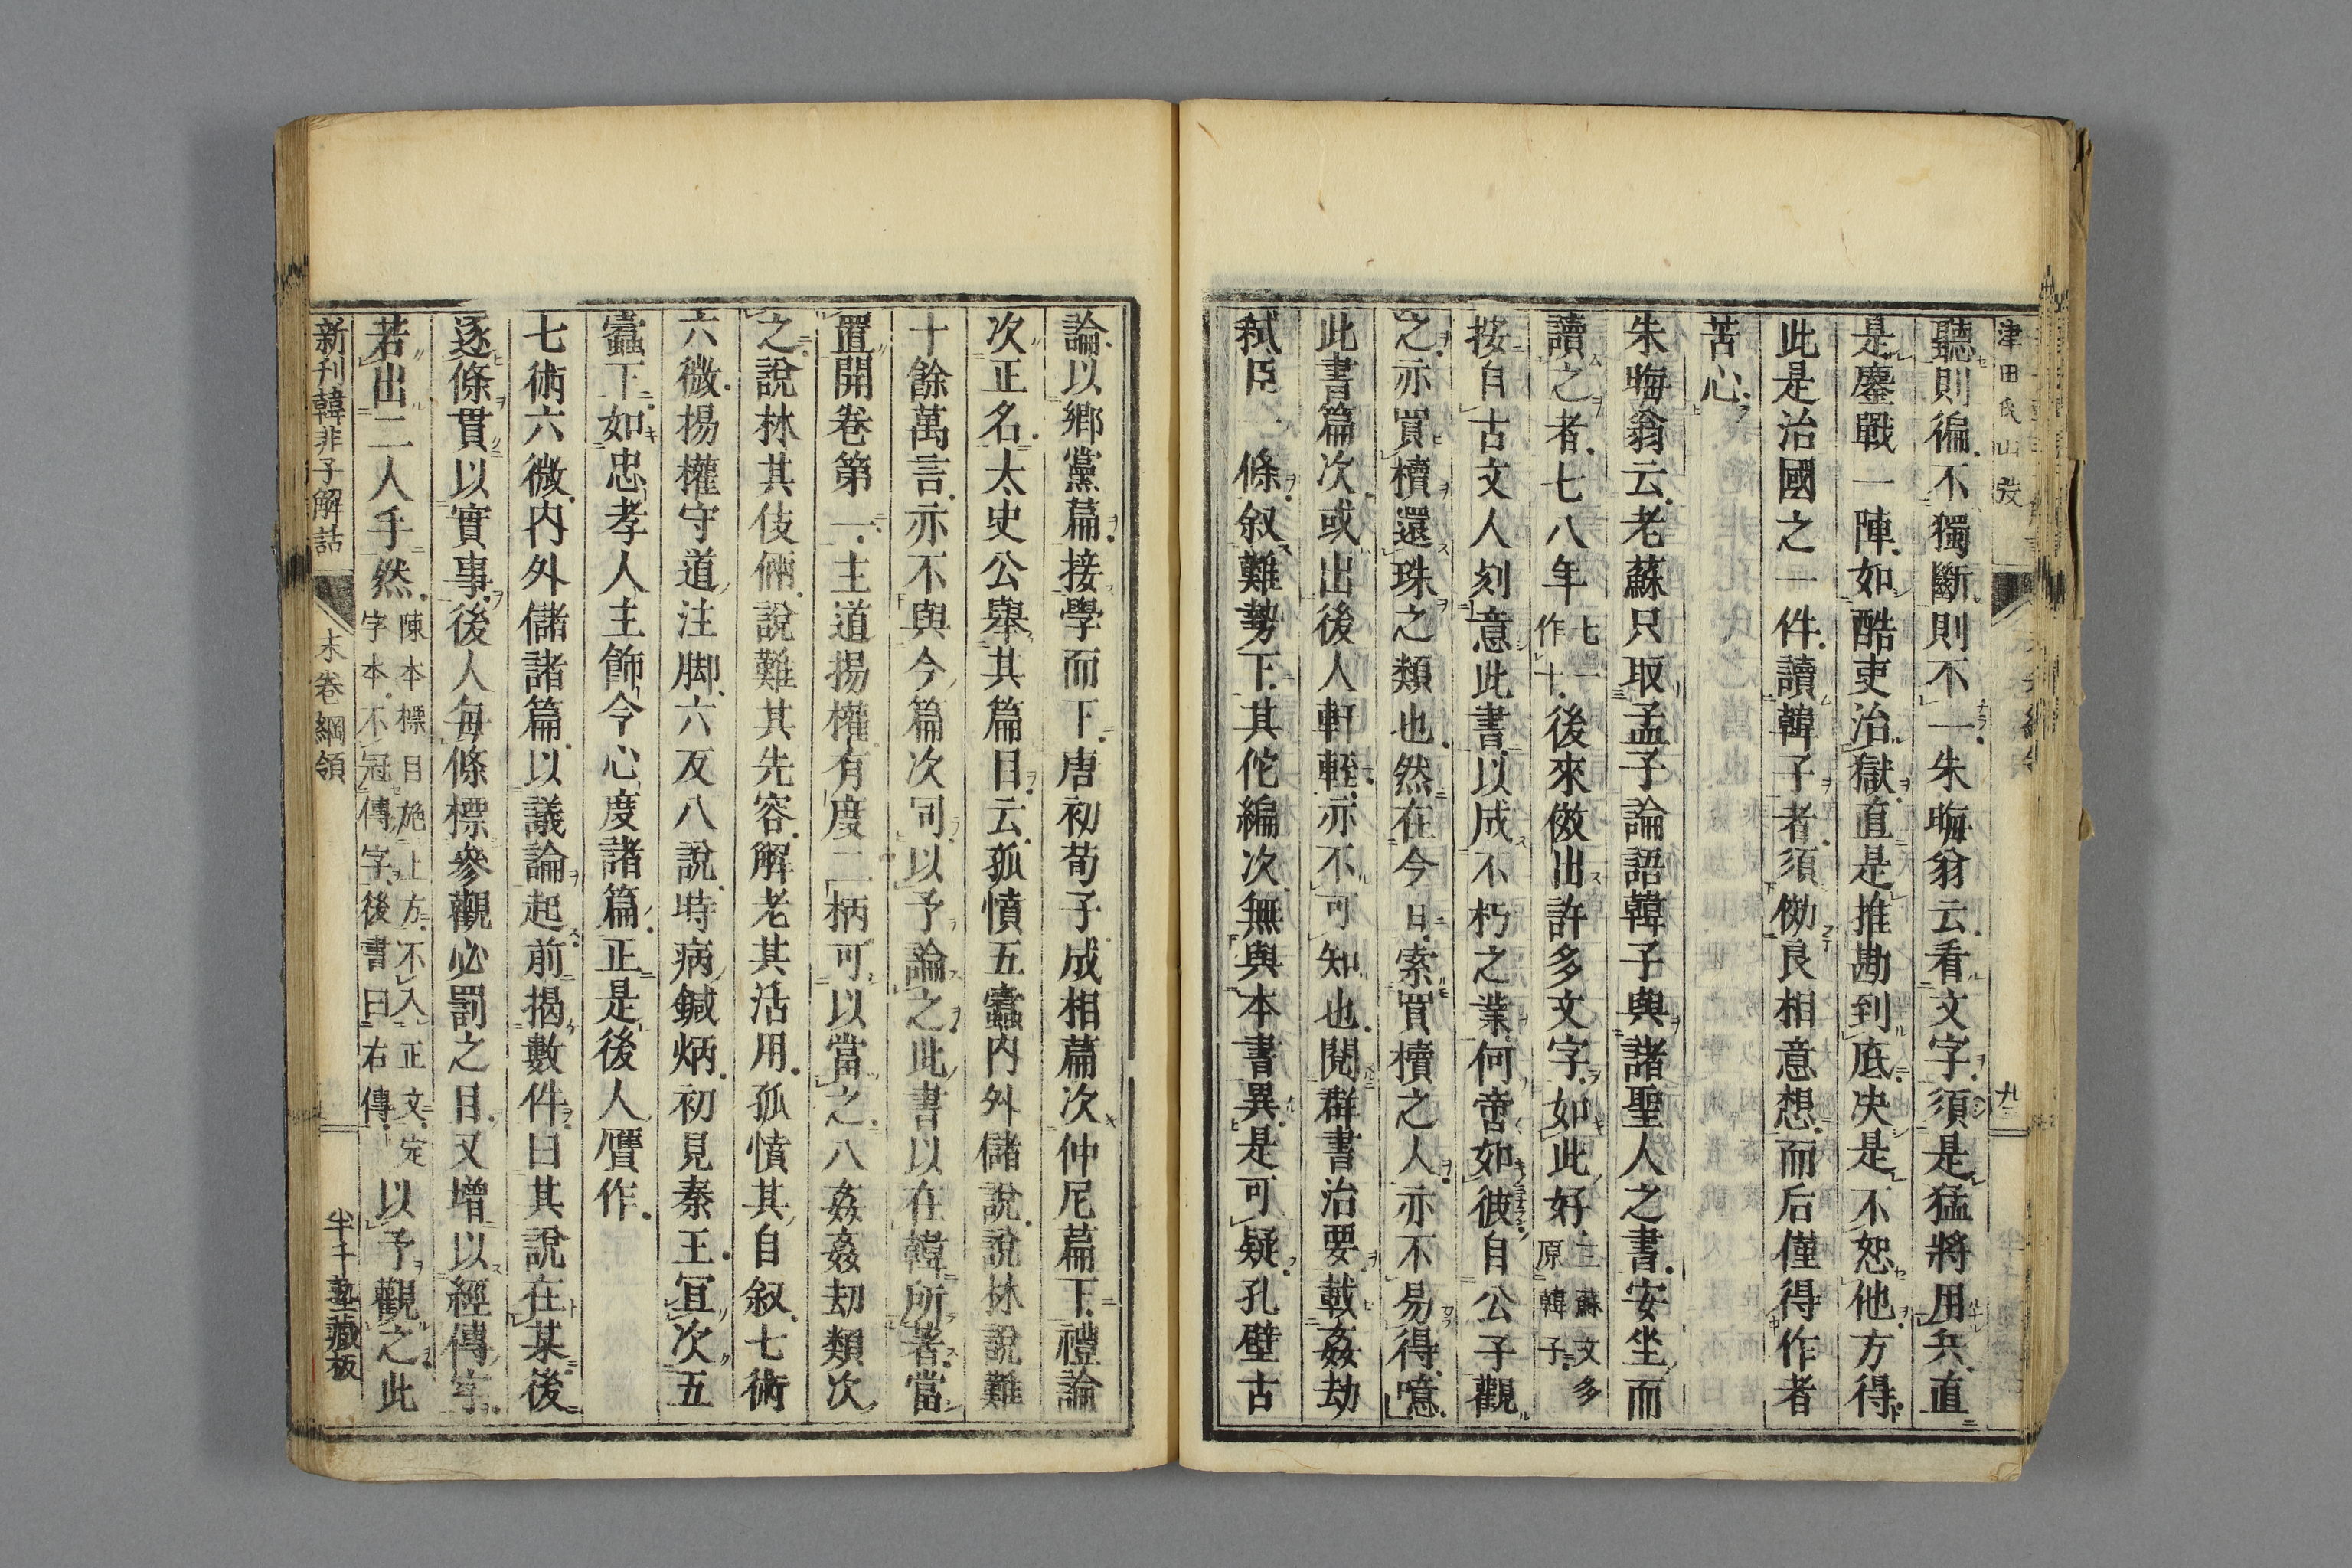 津田氏山發
九
聽則徧不獨斷則不一朱晦翁云看文字須是猛將用兵直
是鏖戰一陣如酷吏治獄直是推勘到底决是不恕他方得
此是治國之一件讀韓子者須倣良相意想而后僅得作者
苦心
朱晦翁云老蘇只取孟子論語韓子與諸聖人之書安坐而
讀之者七八年七一作十後來倣出許多文字如此好三蘇文多原韓子
按自古文人刻意此書以成不朽之業何啻如彼自公子觀
之亦買櫝還珠之類也然在今日索買櫝之人亦不易得噫
此書篇次或出後人軒輊亦不可知也閱群書治要載姦劫
弑臣一條叙難勢下其佗編次無與本書異是可疑孔壁古
論以鄉黨篇接學而下唐初荀子成相篇次仲尼篇下禮論
次正名太史公舉其篇目云孤憤五蠹内外儲說說林說難
十餘萬言亦不與今篇次同以予論之此書以在韓所著當
置開卷第一主道揚權有度二柄可以當之八姦姦劫類次
之說林其伎倆說難其先容解老其活用孤憤其自叙七術
六微揚權守道注脚六反八說時病鍼炳初見秦王冝次五
蠹下如忠孝人主飾令心度諸篇正是後人贋作
七術六微内外儲諸篇以議論起前揭數件曰其說在某後
逐條貫以實事後人每條標參觀必罰之目又增以經傳字
若出二人手然陳本標目施上方不入正文定字本不冠傳字後書曰右傳以予觀之此
新刊韓非子解詁
末卷綱領
半千塾藏板